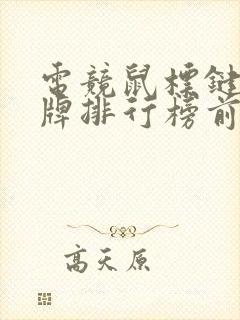 電競鼠標鍵
牌排行榜前
高天原